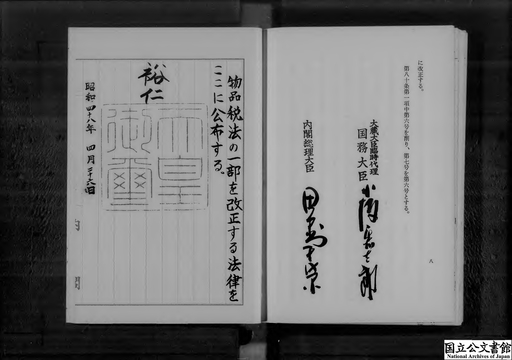 に改正する。
第八十条第一項中第六号を削り、第七号を第六号とする。
八
大蔵大臣臨時代理
国務大臣
内閣総理大臣
田中角栄
物品税法の一部を改正する法律を
ここに公布する。
裕仁
天皇
御璽
昭和四十八年 四月二十六日
内閣
国立公文書館
National Archives of Japan